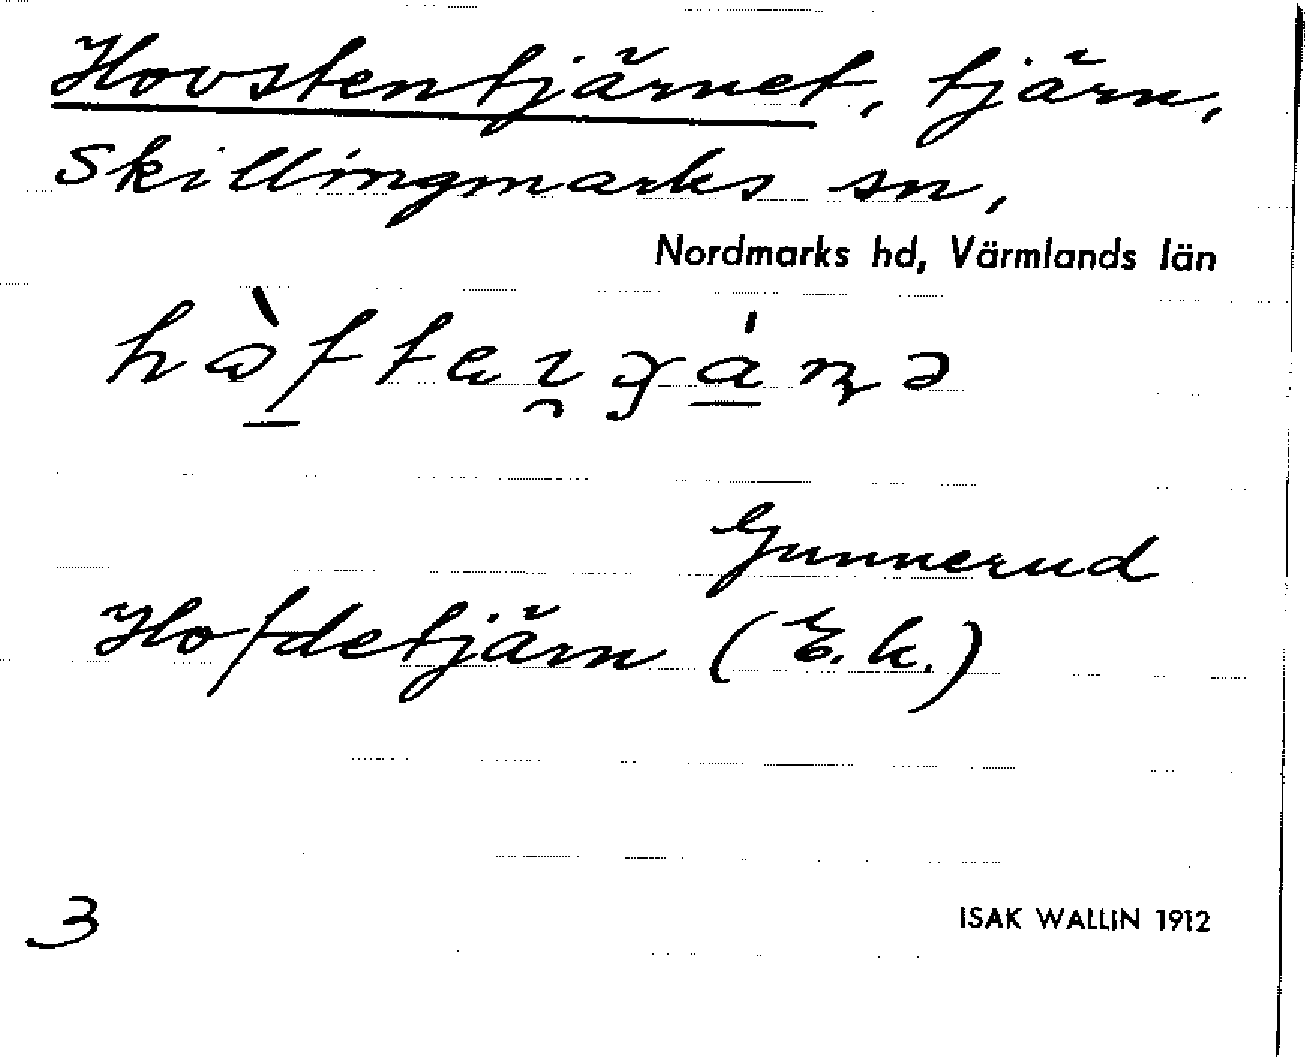 Hovstentjärnet, tjärn,
Skillingmarks sn,
Nordmarks hd, Värmlands län
Gunnerud
Hofdetjärn (E.k.)
3
ISAK WALLIN 1912